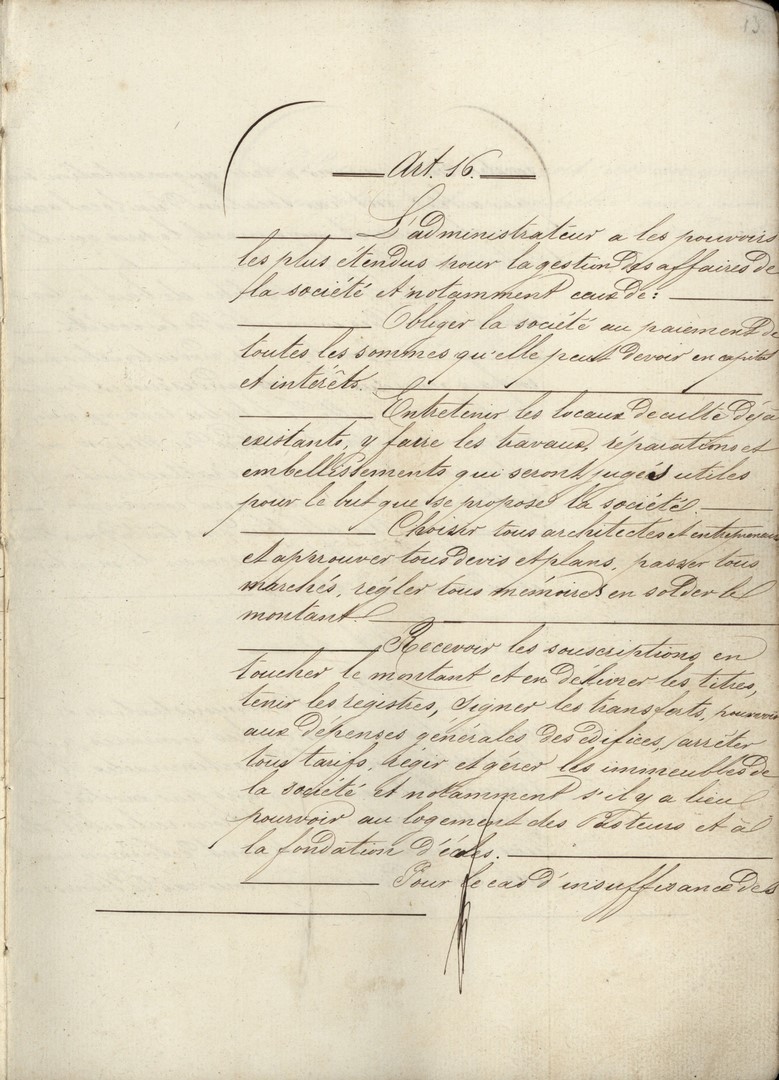 13.
Art. 16.
L'administrateur a les pouvoirs
les plus étendus pour la gestion des affaires de
la société et notamment ceux de :
Obliger la société au paiement de
toutes les sommes qu'elle peut devoir en capital
et intérêts.
Entretenir les locaux de culte déjà
existants, y faire les travaux, réparations et
embellissements qui seront jugés utiles
pour le but que se propose la société.
Choisir tous architectes et entrepreneurs
et approuver tous devis et plans, passer tous
marchés, régler tous mémoires en solder le
montant.
Recevoir les souscriptions, en
toucher le montant et en délivrer les titres,
tenir les registres, signer les transferts, pourvoir
aux dépenses générales des édifices, arrêter
tous tarifs, régir et gérer les immeubles de
la société et notamment s'il y a lieu
pourvoir au logement des Pasteurs et à
la fondation d'écoles.
Pour le cas d'insuffisance des